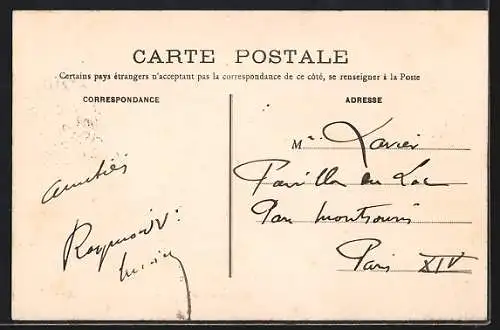 CARTE POSTALE
Certains pays étrangers n'acceptant pas la correspondance de ce côté, se renseigner à la Poste
CORRESPONDANCE
ADRESSE
Amitiés
Raymond V.
Mr Xavier
Pavillon du Lac
Parc Montsouris
Paris XIV